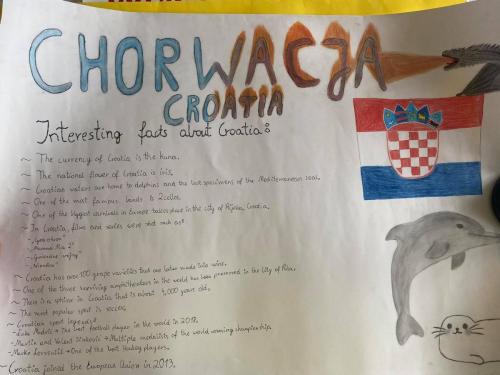 CHORWACJA
CROATIA
Interesting facts about Croatia:
~ The currency of Croatia is the kuna.
~ The national flower of Croatia is iris.
~ Croatian waters are home to dolphins and the last specimens of the Mediterranean seal.
~ One of the most famous bands is 2cellos.
~ One of the biggest carnivals in Europe takes place in the city of Rijeka, Croatia.
~ In Croatia, films and series were shot such as:
- "Mamma Mia 2"
~ Croatia has over 100 grape varieties that are later made into wine.
~ One of the three surviving amphitheaters in the world has been preserved in the city of Pula.
~ There is a sphinx in Croatia that is about 4,000 years old.
~ The most popular sport is soccer.
~ Croatian sport legends:
- Luka Modrić → the best football player in the world in 2018.
- Martin and Valent Sinković → Multiple medalists of the world rowing championship.
→ One of the best Hockey players.
~ Croatia joined the European Union in 2013.